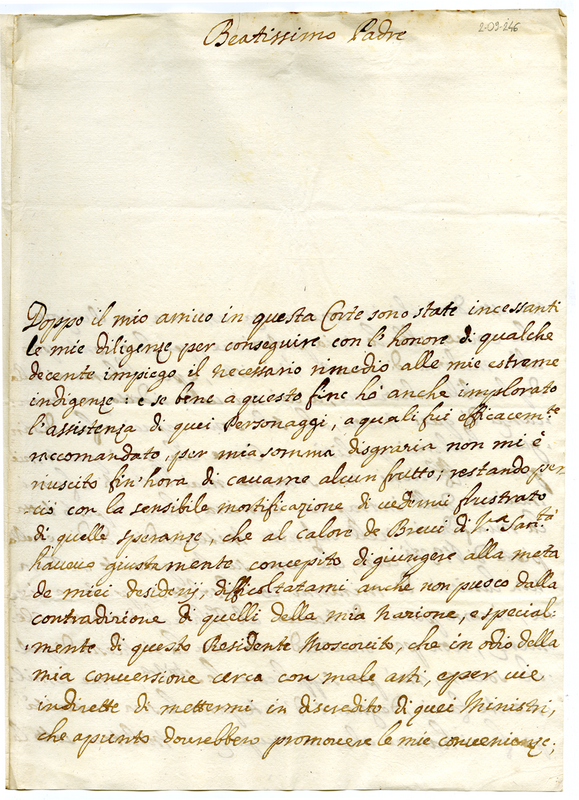 Beatissimo Padre
2-03-246
Doppo il mio arriuo in questa Corte sono state incessanti
le mie diligenze per conseguire con l'honore di qualche
decente impiego il necessario rimedio alle mie estreme
indigenze: e se bene a questo fine hò anche implorato
l'assistenza di quei Personaggi, a quali fui efficacem.te
raccomandato, per mia somma disgrazia non mi è
riuscito fin'hora di cauarne alcun frutto; restando per
ciò con la sensibile mortificazione di uedermi frustrato
di quelle speranze, che al calore de Breui di V.ra Sant.tà
haueuo giustamente concepito di giungere alla meta
de miei desiderij, difficoltatami anche non puoco dalla
contradizione di quelli della mia Nazione, e special:
mente di questo Residente Moscouito, che in odio della
mia conuersione cerca con male arti, e per uie
indirette di mettermi in discredito di quei Ministri,
che apunto dourebbero promouere le mie conuenienze;